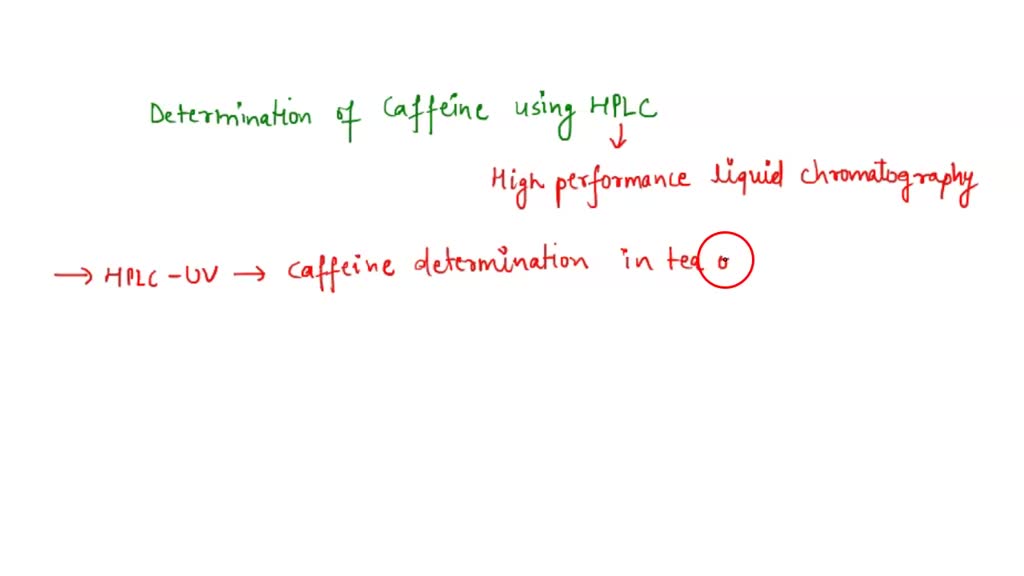 Determination of Caffeine using HPLC
↓
High performance liquid chromatography
→ HPLC-UV → Caffeine determination in tea o